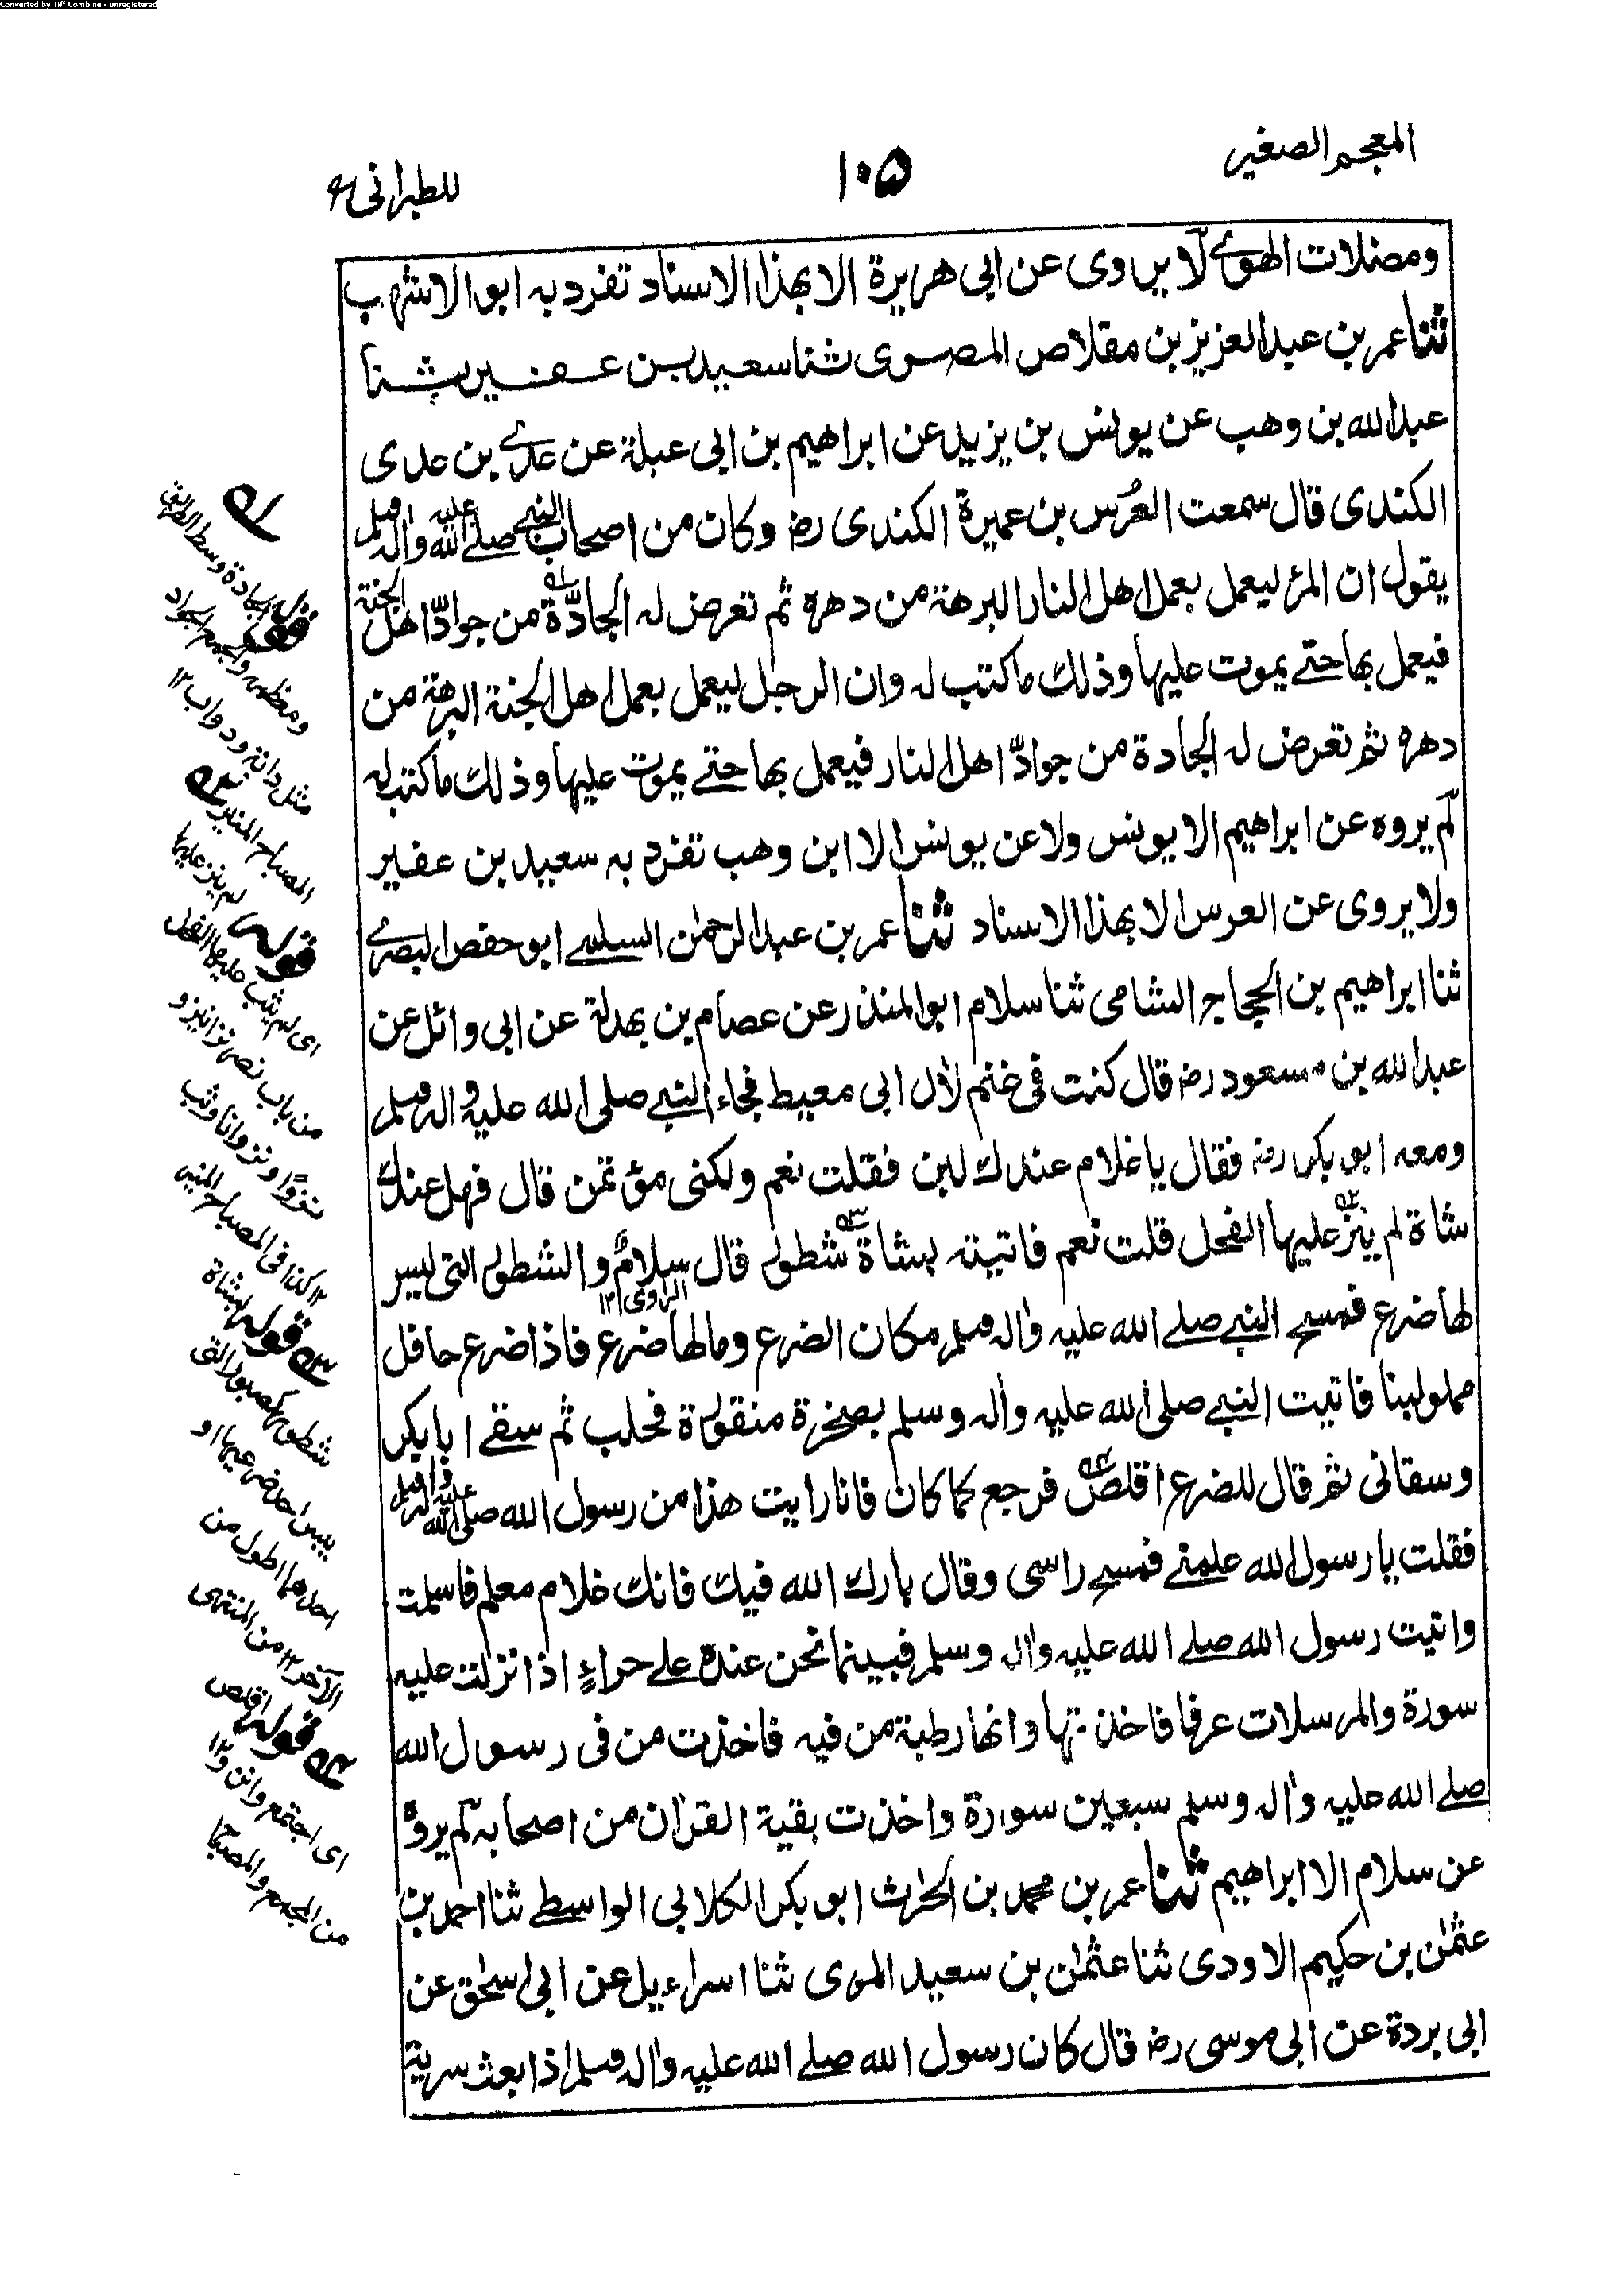 Converted by Tiff Combine - unregistered
المعجم الصغير
١٠۵
للطبرانی
ومضلات الهوے لا یروی عن ابی هریرة الا بهذا الاسناد تفرد به ابو الاشهب
ثنا عمر بن عبد العزیز بن مقلاص المصری ثنا سعید بن عفیر ثنا
عبد الله بن وهب عن یونس بن یزید عن ابراهیم بن ابی عبلة عن عدے بن عدی
الکندی قال سمعت العُرس بن عمیرة الکندی رضـ وکان من اصحاب النبے صلے الله علیه واٰله وسلم
یقول ان المرء لیعمل بعمل اهل النار البرهة من دهره ثم تعرض له الجادّة من جوادّ اهل الجنة
فیعمل بها حتے یموت علیها وذلك ما کتب له وان الرجل لیعمل بعمل اهل الجنة البرهة من
دهره ثم تعرض له الجادة من جوادّ اهل النار فیعمل بها حتے یموت علیها وذلك ما کتب له
لم یروه عن ابراهیم الا یونس ولا عن یونس الا ابن وهب تفرد به سعید بن عفیر
ولا یروی عن العرس الا بهذا الاسناد ثنا عمر بن عبد الرحمٰن السلمے ابو حفص البصرے
ثنا ابراهیم بن الحجاج الشامی ثنا سلام ابو المنذر عن عصام بن بهدلة عن ابی وائل عن
عبد الله بن مسعود رضـ قال کنت فی غنم لاٰل ابی معیط فجاء النبے صلی الله علیه واٰله وسلم
ومعه ابو بکر رضـ فقال یا غلام عندك لبن فقلت نعم ولکنی مؤتمن قال فهل عندك
شاة لم ینز علیها الفحل قلت نعم فاتیته بشاة شطور قال سلامٌ والشطور التی لیس
الراوی ١٢
لها ضرع فمسح النبے صلے الله علیه واٰله وسلم مکان الضرع وما لها ضرع فاذا ضرع حافل
مملو لبنا فاتیت النبے صلی الله علیه واٰله وسلم بصخرة منقورة فحلب ثم سقے ابا بکر
وسقانی ثم قال للضرع اقلص فرجع کما کان فانا رایت هذا من رسول الله صلی الله علیه واٰله وسلم
فقلت یا رسول الله علمنے فمسح راسی وقال بارك الله فیك فانك غلام معلم فاسلمت
واتیت رسول الله صلے الله علیه واٰله وسلم فبینما نحن عنده علے حراءٍ اذ انزلت علیه
سورة والمرسلات عرفا فاخذتها وانها رطبة من فیه فاخذت من فی رسول الله
صلے الله علیه واٰله وسلم سبعین سورة واخذت بقیة القراٰن من اصحابه لم یروه
عن سلام الا ابراهیم ثنا عمر بن محمد بن الحٰرث ابو بکر الکلابی الواسطے ثنا احمد بن
عثمٰن بن حکیم الاودی ثنا عثمٰن بن سعید المری ثنا اسراءیل عن ابی اسحٰق عن
ابی بردة عن ابی موسی رضـ قال کان رسول الله صلے الله علیه واٰله وسلم اذا بعث سریة
قوله الجادة وسط الطریق
ومعظمه والجمع الجواد
مثل دابة ودواب ١٢
المصباح المنیر
قوله لم ینز علیها
ای لم یثب علیها الفحل
من باب نصر نزا ینزو
نزوًا ونزوانا وثب
١٢ کذا فی المصباح المنیر
قوله بشاة
شطور کصبور التی
یبس احد ضرعیها او
احدهما اطول من
الآخر ١٢ من المنتهی
قوله اقلص
ای اجتمع
من المجمع والمصباح